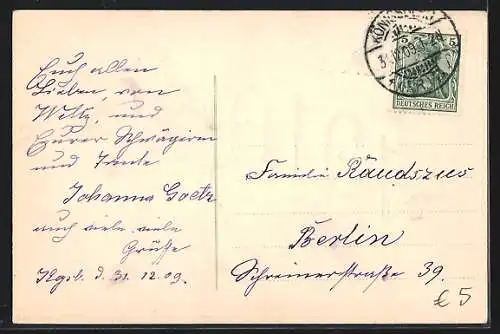 Euch allen
Lieben, von
und
Eurer Schwägerin
und Tante
Johanna Goetz
auch viele, viele
Grüße
Kgsb. d. 31. 12. 09.
5
DEUTSCHES REICH
Familie Räudszus
Berlin
Schreinerstraße 39.
£5